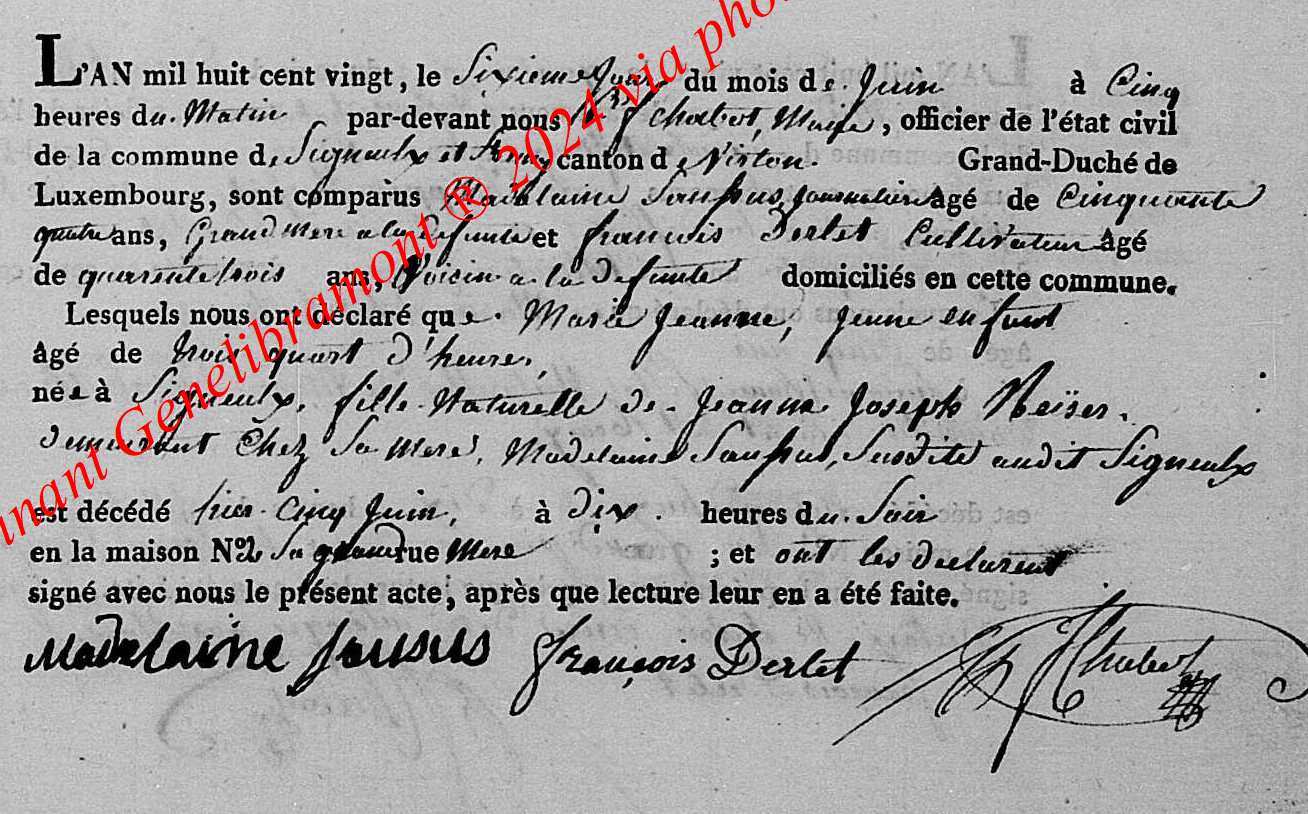 L'AN mil huit cent vingt, le Sixieme Jour du mois de Juin à Cinq
heures du Matin par-devant nous Chabot, Maire, officier de l'état civil
de la commune de Signeulx et canton de Virton. Grand-Duché de
Luxembourg, sont comparus Madelaine Sausus journaliere âgé de Cinquante
quatre ans, Grand Mere a la defunte et françois Derlet Cultivateur âgé
de quarante trois ans, Voisin a la defunte domiciliés en cette commune.
Lesquels nous ont déclaré que Marie Jeanne, jeune enfant
âgé de trois quart d'heure,
née à Signeulx, fille Naturelle de Jeanne Joseph Neïser.
demeurant Chez Sa mere, Madelaine Sausus, Susdite audit Signeulx
est décédé hier Cinq Juin, à dix heures du Soir
en la maison No de Sa grand rue Mere ; et ont les declarent
signé avec nous le présent acte, après que lecture leur en a été faite.
Madelaine Sousus François Derlet Chabot
unant Genelibramont ® 2024 via pho